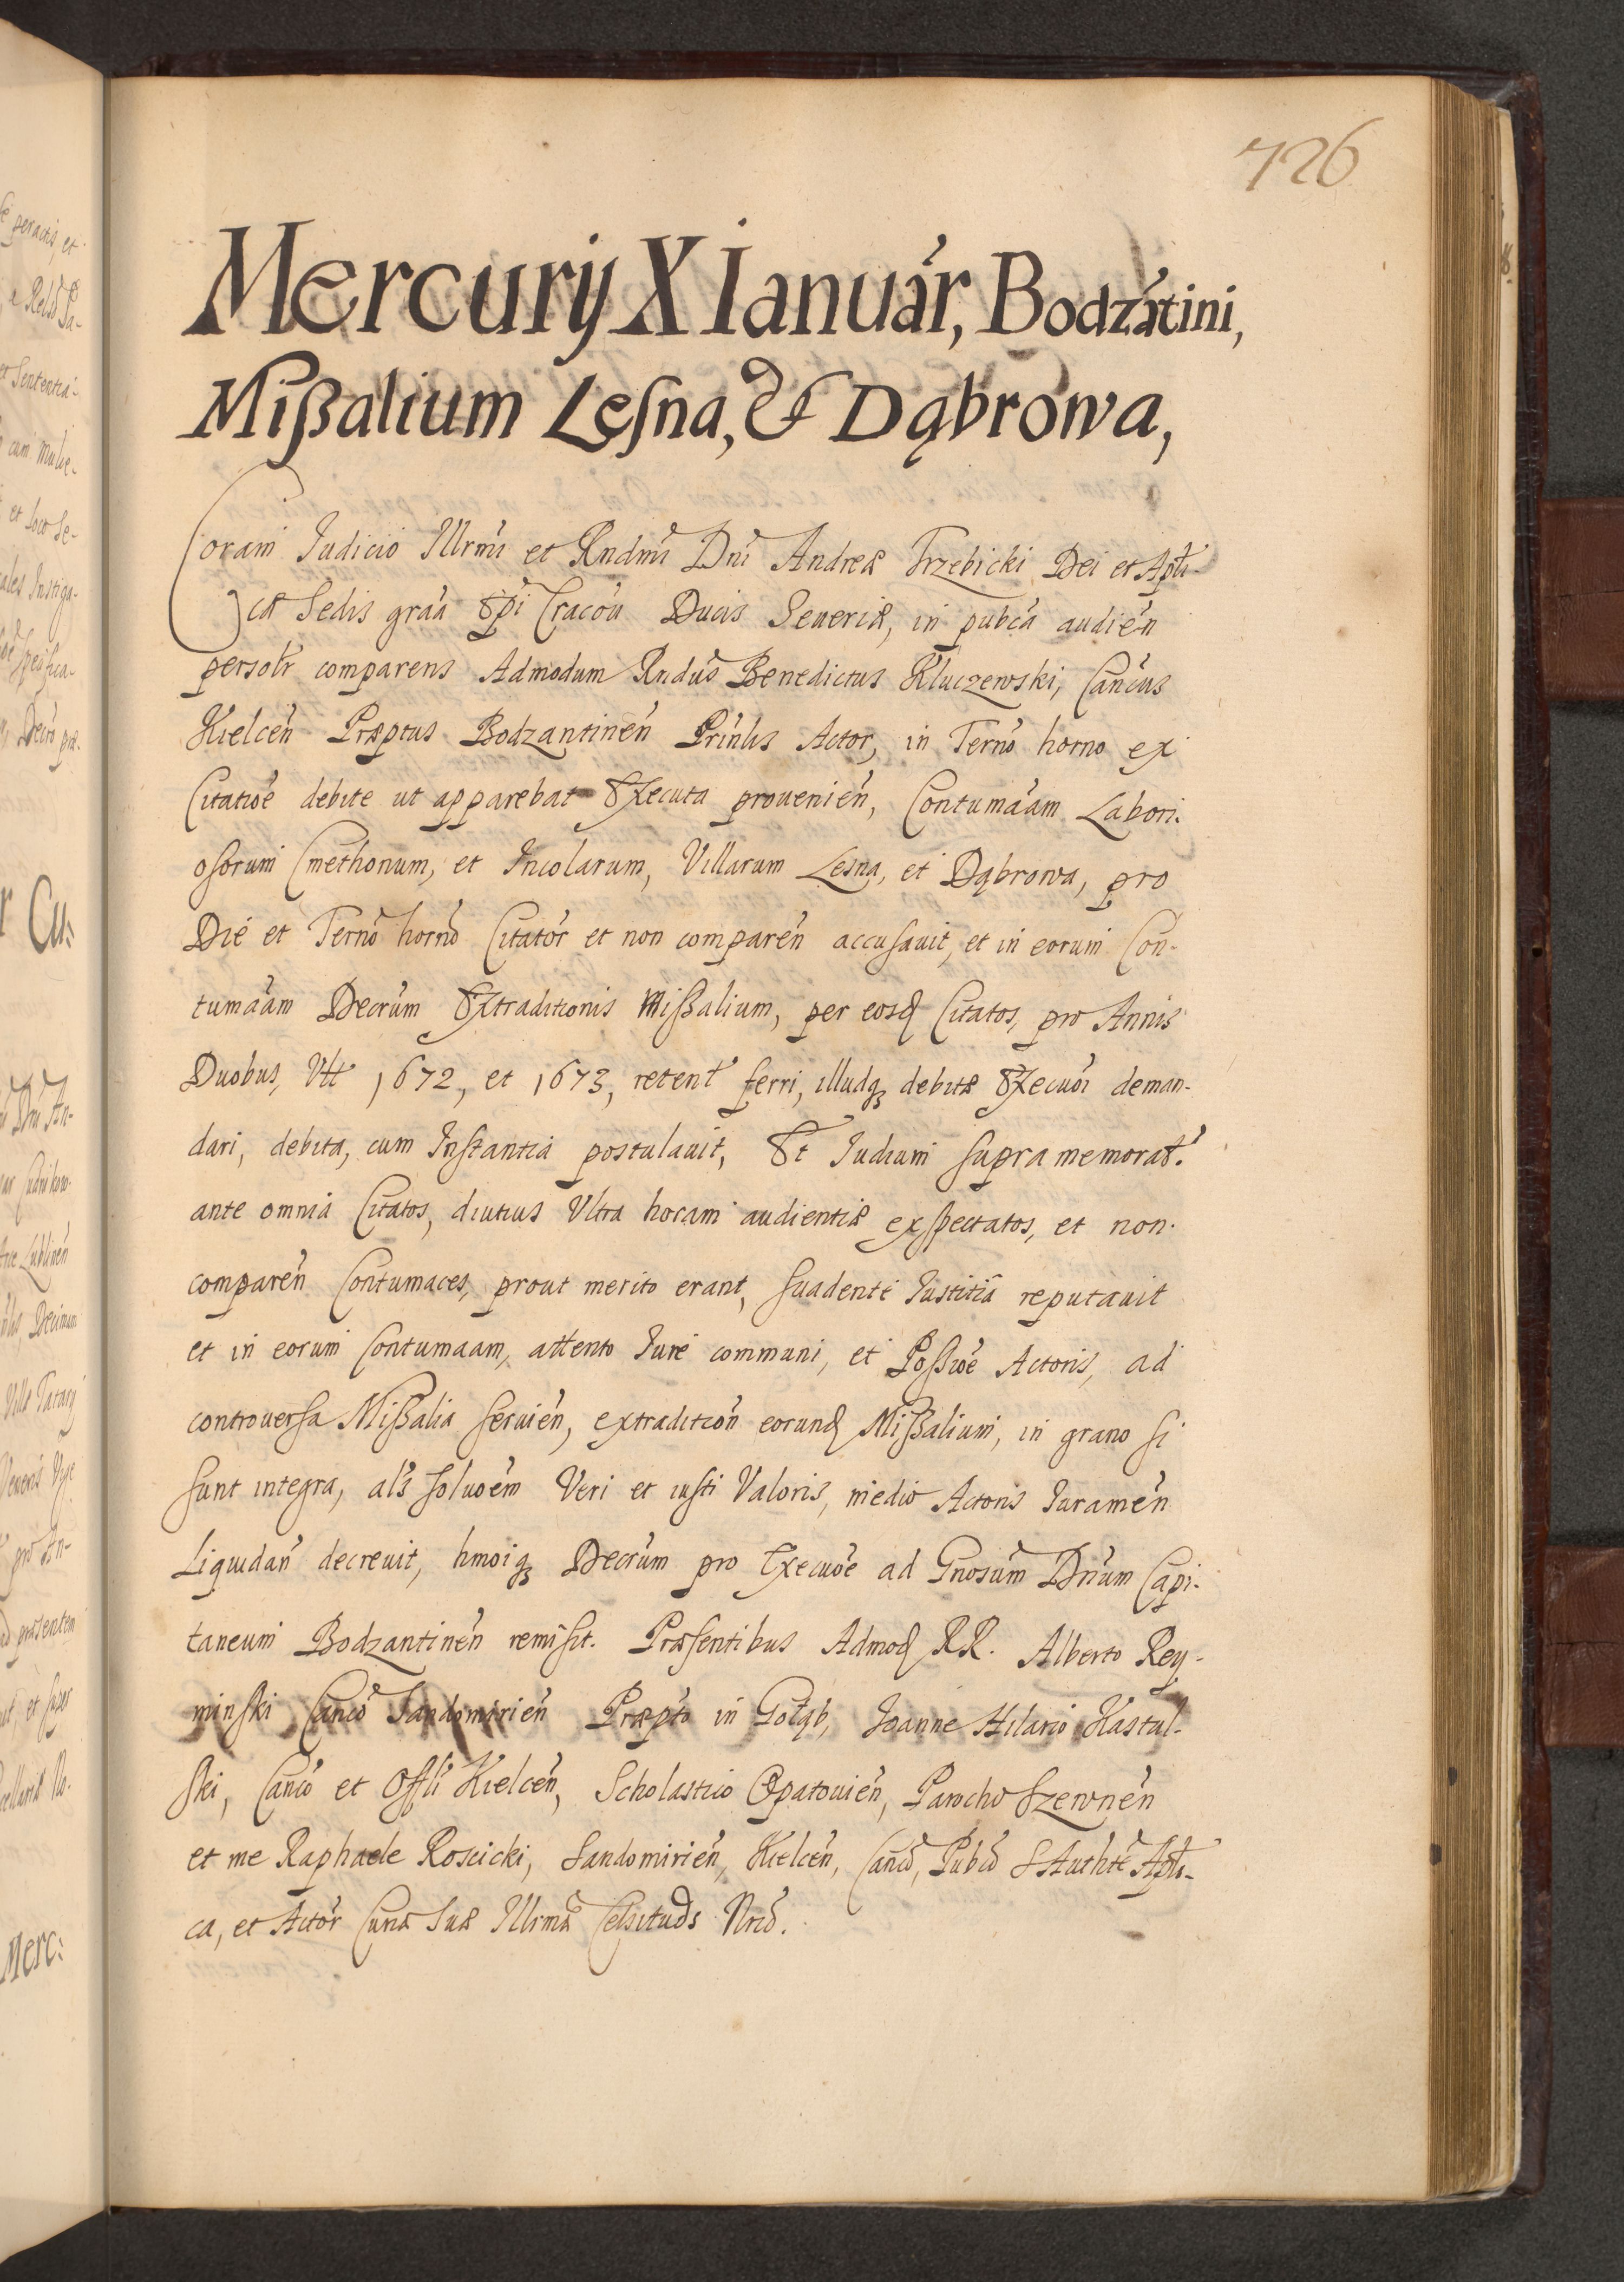 726
Mercurij X Ianuár, Bodzátini,
Mißalium Leſna, & Dąbrowa,
Coram Judicio Illrmi et Rndmi Dni Andreæ Trzebicki Dei et Aptli-
cæ Sedis graa Epi Cracoń Ducis Seueriæ, in pubca audień
persolr comparens Admodum Rndus Benedictus Kluczewski, Cancus
Kielceń Præptus Bodzantineń Prinlis Actor, in Terno horno ex
Citatioe debite ut apparebat Executa prouenień, Contumaam Labori-
oſorum Cmethonum, et Incolarum, Villarum Lesna, et Dąbrowa, pro
Die et Terno horno Citator et non compareń accuſauit, et in eorum Con-
tumaam Decrum Extraditionis Mißalium, per eosd Citatos, pro Annis
Duobus, Vtt 1672, et 1673, retent ferri, illudq debitæ Execuoi deman-
dari, debita, cum Inſtantia postulauit, Et Iudium ſupra memorat.
ante omnia Citatos, diutius Vltra horam audientiæ exſpectatos, et non
compareń Contumaces, prout merito erant, ſuadente Iustitiâ reputauit
et in eorum Contumaam, attento Iure communi, et Poſſioe Actoris, ad
controuerſa Mißalia ſeruień, extraditioń eorund Mißalium, in grano ſi
ſunt integra, als ſoluoem Veri et iuſti Valoris, medio Actoris Iurameń
Liquidań decreuit, hmoiq Decrum pro Execuoe ad Gnosum Dnum Capi-
taneum Bodzantineń remiſit. Præſentibus Admod RR. Alberto Rey-
minſki Canco Sandomirień Præpto in Gołąb, Joanne Hilario Kastul-
ſki, Canco et Offli Kielceń, Scholastico Opatouień, Parocho Szewneń
et me Raphaele Roscicki, Sandomirień, Kielceń, Canco, Pubco S Authte Aptli-
ca, et Actor Curiæ Suæ Illrmæ Celsituds Nrio.